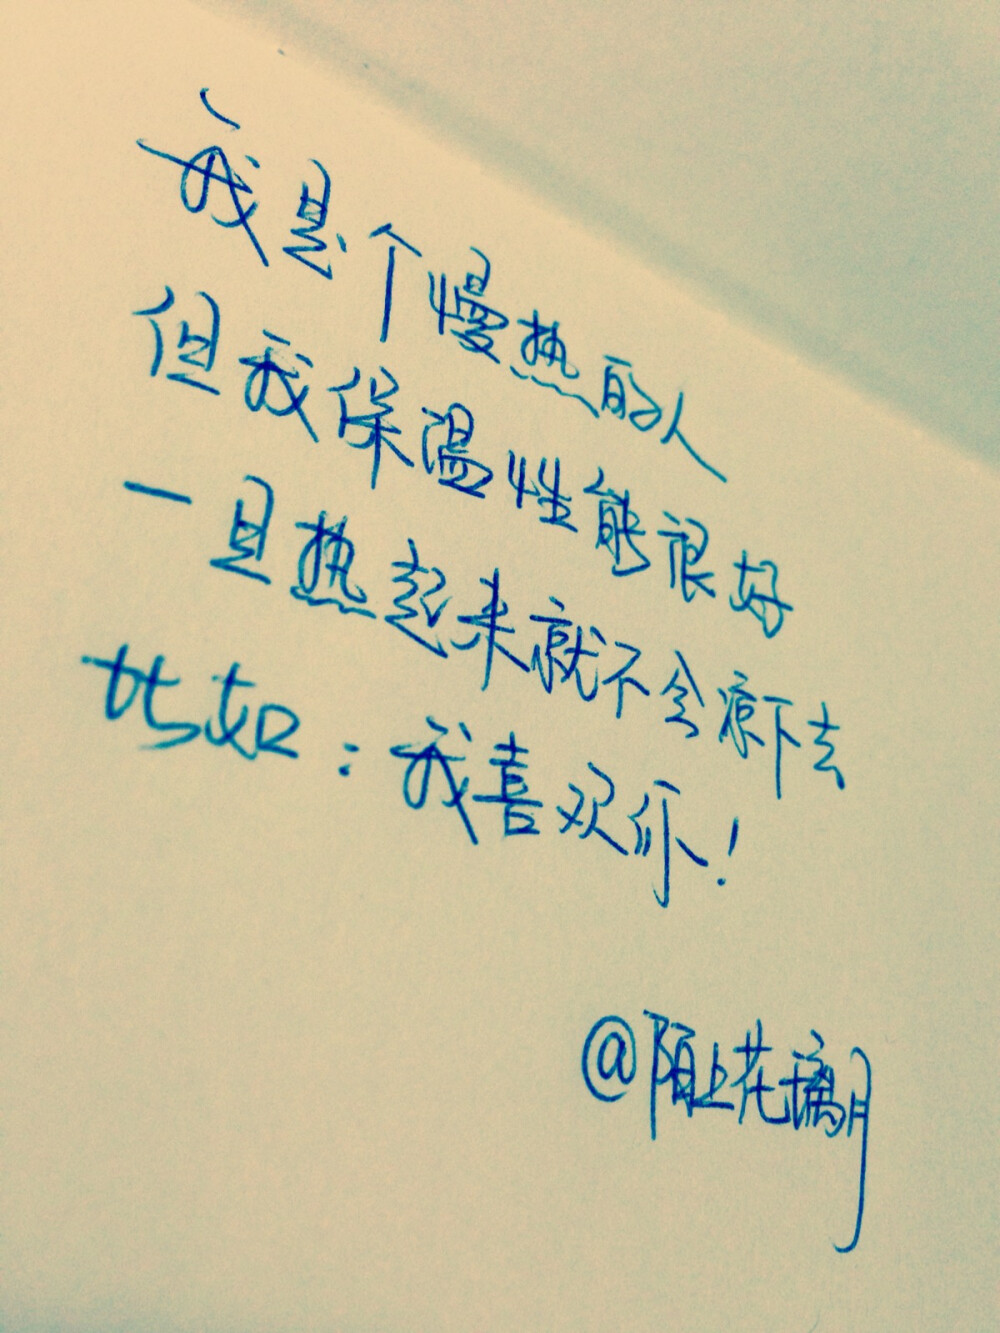 我是个慢热的人
但我保温性能很好
一旦热起来就不会凉下去
比如：我喜欢你！
@陌上花璃月